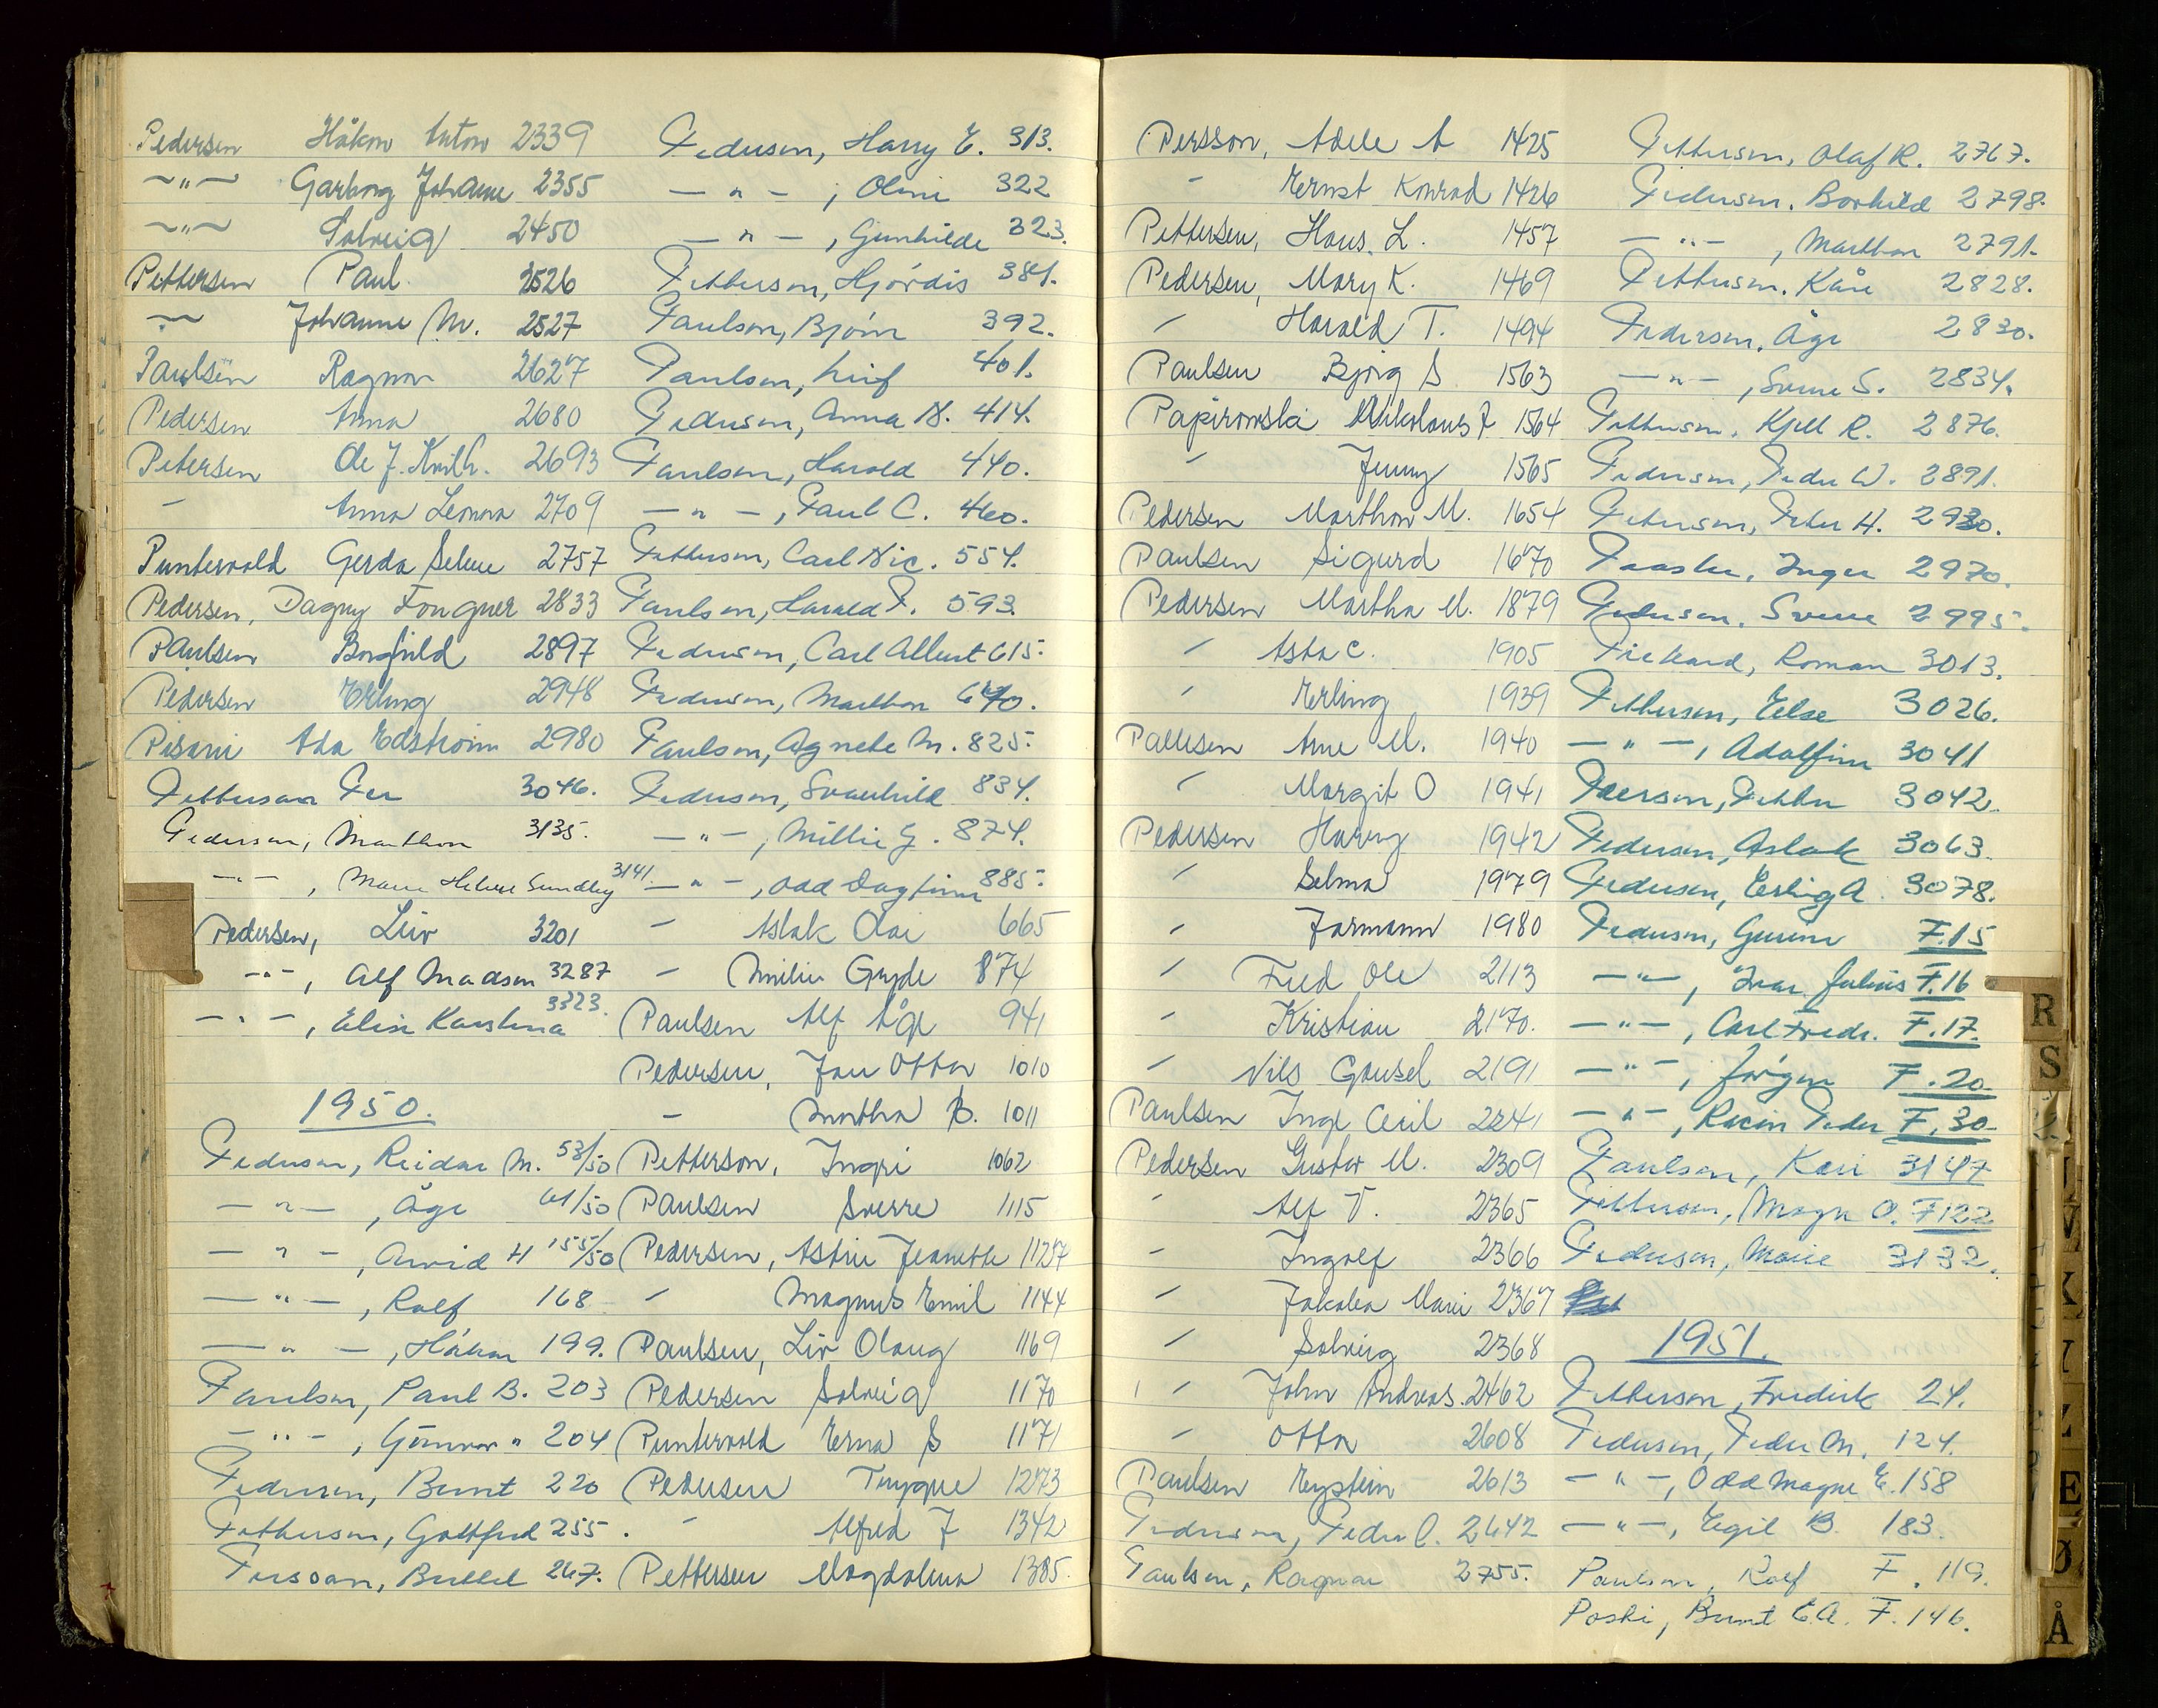 Pedersen Håkon Anton 2339
—"— Garborg Johanne 2355
—"— Solveig 2450
Pettersen Paul 2526
— Johanne M. 2527
Paulsen Ragnar 2627
Pedersen Anna 2680
Petersen Ole J. 2693
- Anna Leonora 2709
Puntervold Gerda Selene 2757
Pedersen, Dagny Fougner 2833
Paulsen Borghild 2897
Pedersen Erling 2948
Pisani Ada Edström 2980
Petterson Per 3046.
Pedersen, Marthon 3135.
-"-, Marie Helene Sundby 3141.
Pedersen, Liv 3201
-"-, Alf Madsen 3287
-"-, Elise Karstina 3323.
1950.
Pedersen, Reidar M. 53/50
-"-, Åge 61/50
-"-, Arvid H 155/50
-"-, Rolf 168
-"-, Håkon 199.
Paulsen, Paul B. 203
-"-, Gunvor " 204
Pedersen, Bernt 220
Pettersen, Gottfred 255.
Persson, Bertel 267.
Pedersen, Harry E. 313.
-"-, Oline 322
-"-, Gunhilde 323.
Pettersen, Hjørdis 384.
Paulsen, Bjørn 392.
Paulsen, Leif 401.
Pedersen, Anna N. 414.
Paulsen, Harald 440.
-"-, Paul C. 460.
Pettersen, Carl Nic. 554.
Paulsen, Harald F. 593.
Pedersen, Carl Albert 615.
Pedersen, Marthon 670.
Paulsen, Agnete M. 825.
Pedersen, Svanhild 834.
-"-, Millie G. 874.
-"-, Odd Dagfinn 885.
- Aslak Olai 665
- Emilie Gryde 874
Paulsen Alf Åge 941
Pedersen, Jan Otto 1010
- Martha B. 1011
Petterson, Ingri 1062
Paulsen Sverre 1115
Pedersen, Astrie Jeanette 1137
- Magnus Emil 1144
Paulsen, Liv Olaug 1169
Pedersen Solveig 1170
Puntervold Erna S 1171
Pedersen Trygve 1273
- Alfred J 1342
Pettersen Magdalena 1385.
Persson, Adele A 1425
- Ernst Konrad 1426
Pettersen, Hans. L. 1457
Pedersen, Mary K. 1469
- Harald T. 1494
Paulsen Bjørg S 1563
Papirowski Nikolaus 1564
- Jenny 1565
Pedersen Marthon M. 1654
Paulsen Sigurd 1670
Pedersen Martha M. 1879
- Asta C. 1905
- Erling 1939
Paulsen Arne M. 1940
- Margit O 1941
Pedersen Harry 1942
- Selma 1979
- Jarmann 1980
- Fred Ole 2113
- Kristian 2170.
- Nils Gausel 2191
Paulsen Inge Cecil 2241
Pedersen Gustav M. 2309
- Alf T. 2365
- Ingolf 2366
- Jakoba Marie 2367
- Solveig 2368
- John Andreas. 2462
- Otto 2608
Paulsen Eystein 2613
Pedersen, Peder O. 2642
Paulsen, Ragnar 2755.
Pettersen, Olaf R. 2767.
Pedersen. Borhild 2798.
-"-, Marthon 2791.
Pettersen. Kåre 2828.
Pedersen. Åge 2830.
-"-, Sverre S. 2834.
Pettersen. Kjell R. 2876.
Pedersen, Peder W. 2891.
Petersen, Peter H. 2930.
Paaske, Inger 2970.
Pedersen. Sverre 2995.
Pickard, Roman 3013.
Pettersen, Else 3026.
-"-, Adolfine 3041
Peerson, Petter 3042.
Pedersen, Aslak 3063.
Pedersen, Erling A. 3078.
Pedersen, Gurine F.15
-"-, Ivar Julius F.16
-"-, Carl Fredr. F.17.
-"-, Jørgen F.20
-"-, Racin Peder F.30-
Paulsen, Kari 3147
Pettersen, Magn O. F122
Pedersen, Marie 3132.
1951.
Petterson, Fredrik 24.
Pedersen, Peder M. 124.
-"-, Odd Magne E. 158
-"-, Egil B. 183.
Paulsen, Rolf F. 119.
Poski, Bernt E.A. F. 146.
R
S
V
K
Y
Z
E
Ø
Å